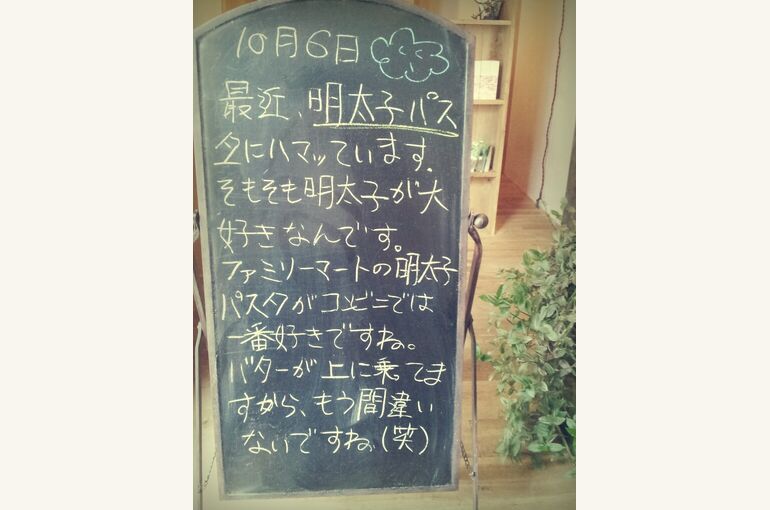 10月6日
最近、明太子パス
タにハマッています。
そもそも明太子が大
好きなんです。
ファミリーマートの明太子
パスタがコンビニでは
一番好きですね。
バターが上に乗ってま
すから、もう間違い
ないですね(笑)